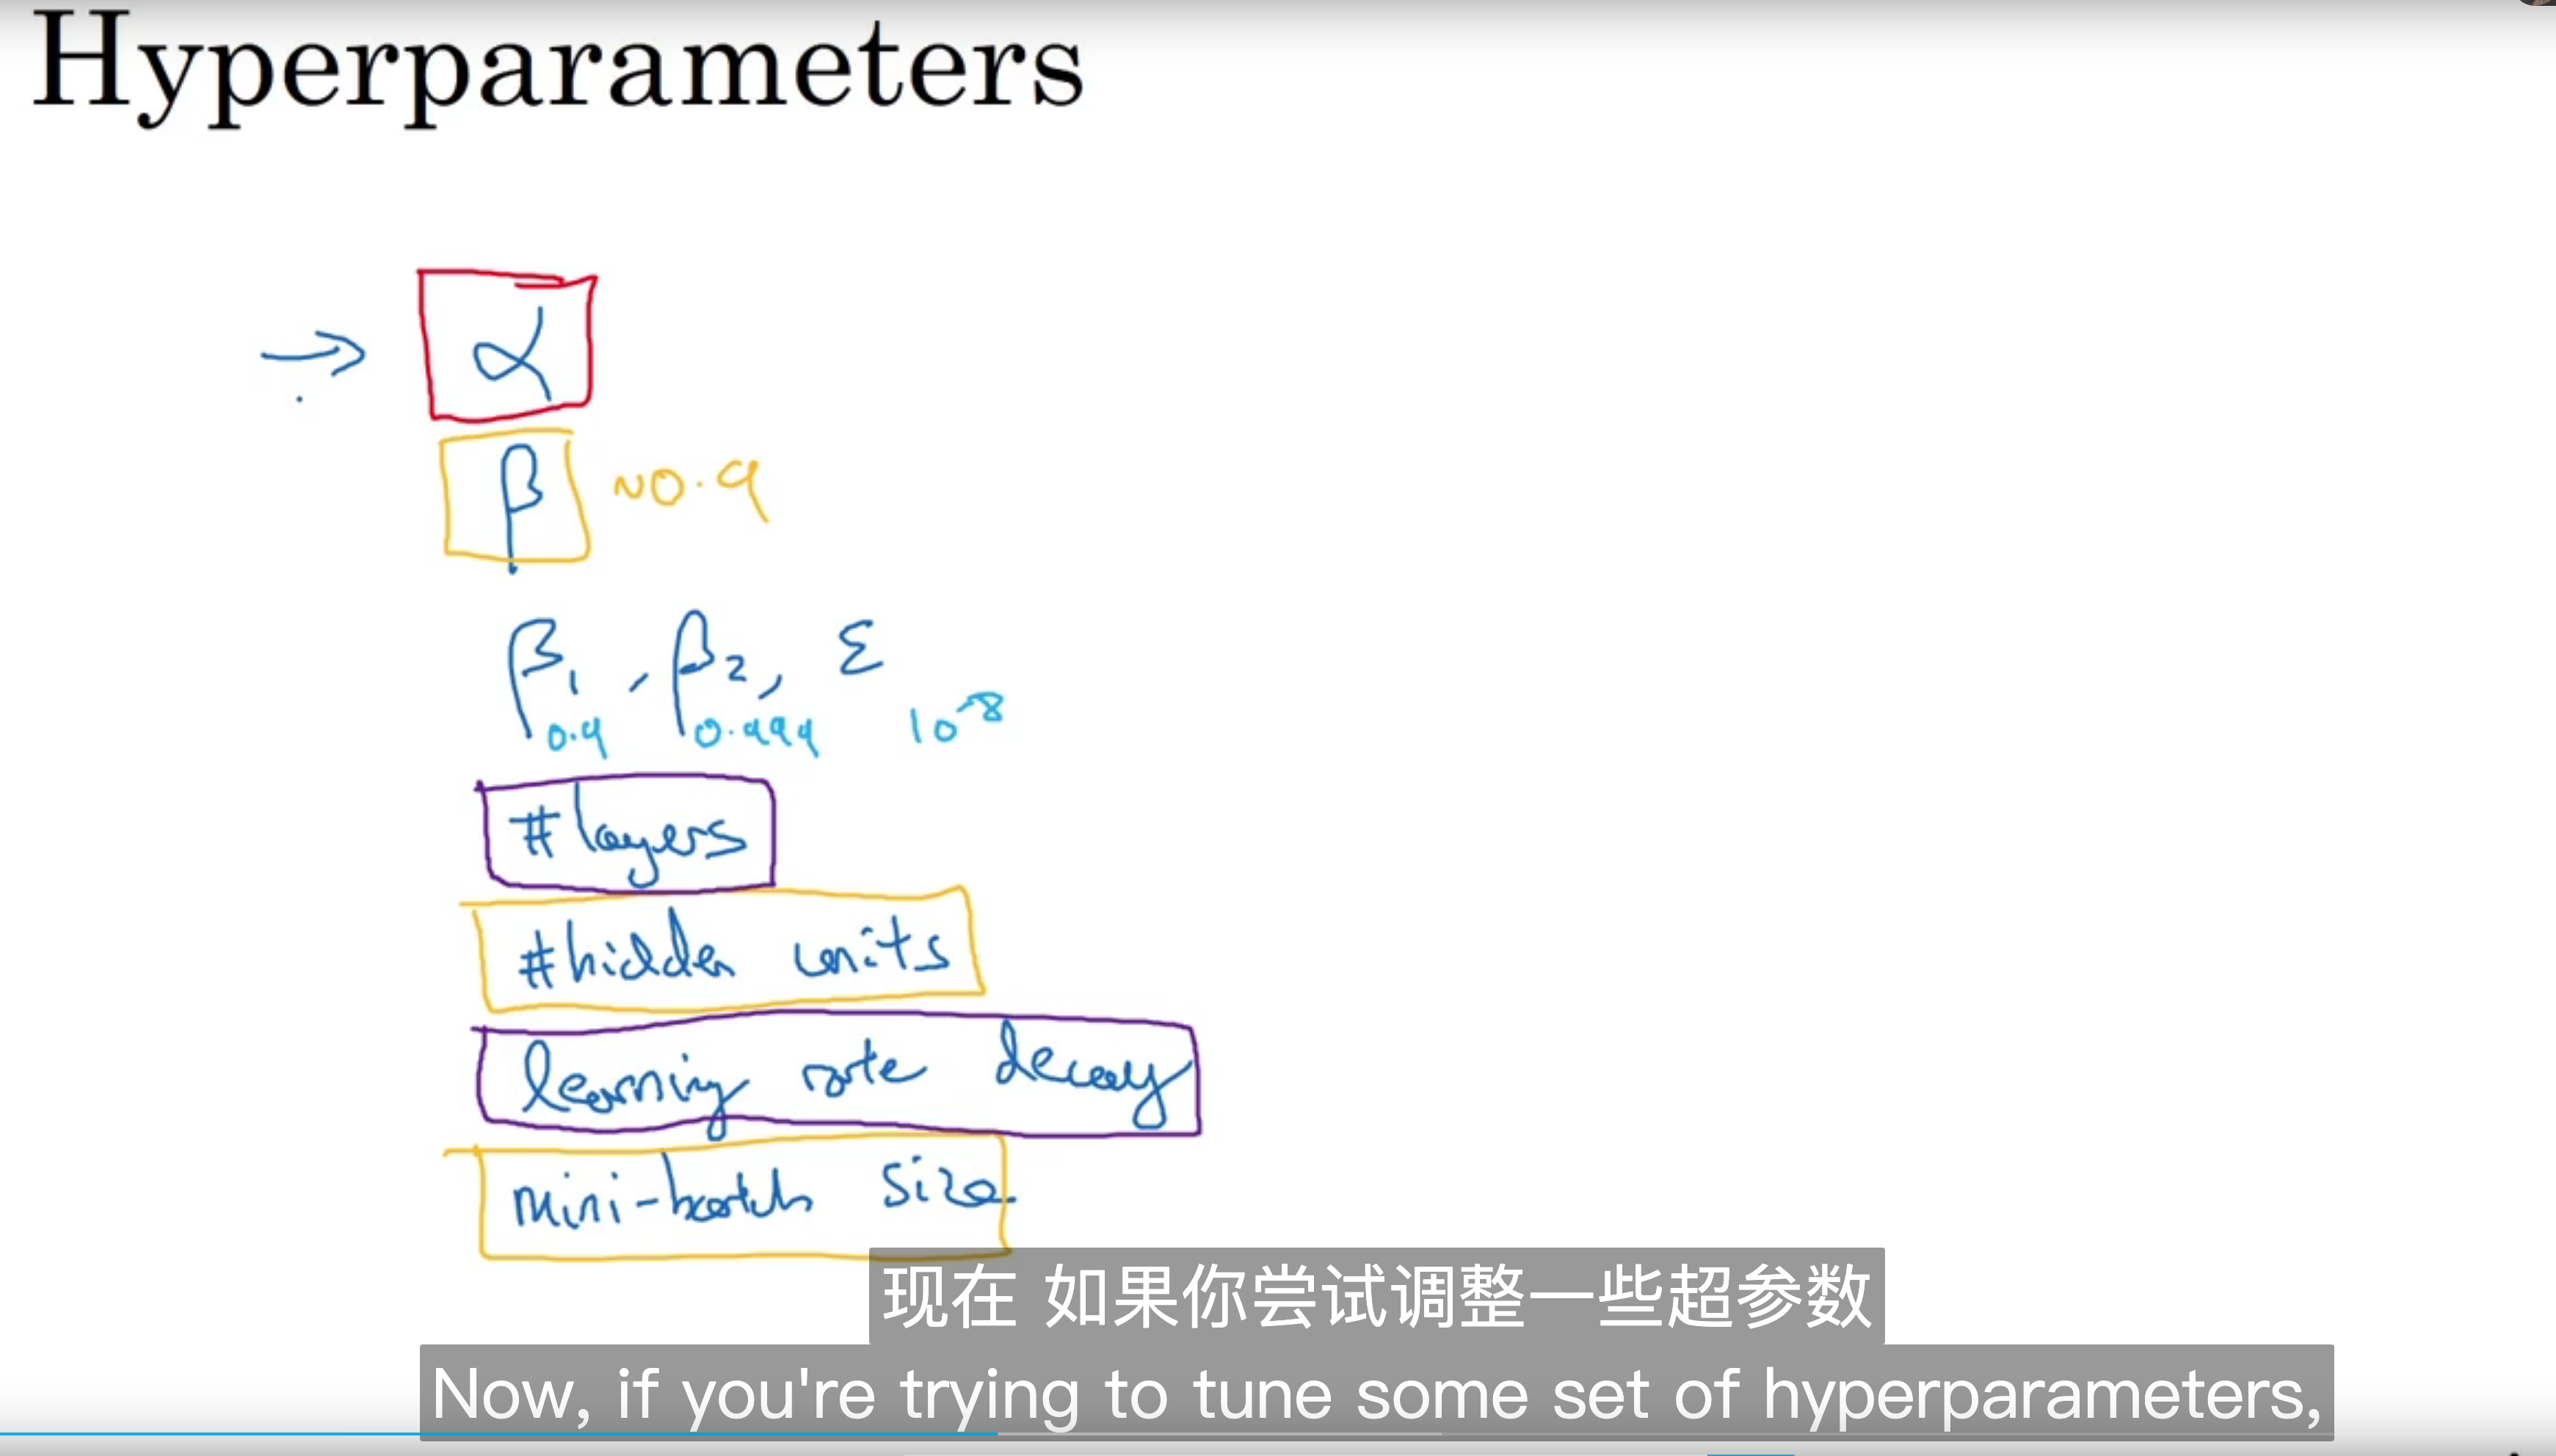 Hyperparameters
α
β ~0.9
β₁, β₂, ε
0.9 0.999 10⁻⁸
#layers
#hidden units
learning rate decay
mini-batch size
现在 如果你尝试调整一些超参数
Now, if you're trying to tune some set of hyperparameters,